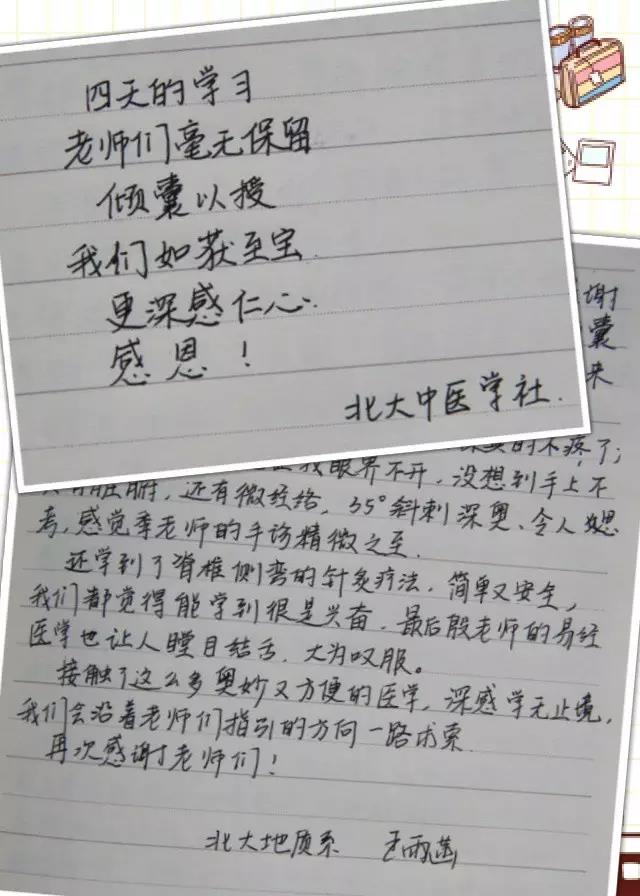 四天的学习
老师们毫无保留
倾囊以授
我们如获至宝
更深感仁心.
感恩！
北大中医学社.
谢
囊
来
的不疼了；
我眼界大开，没想到手上不
脏腑，还有微经络，35°斜刺深奥、令人
考，感觉季老师的手诊精微之至.
还学到了脊椎侧弯的针灸疗法，简单又安全，
我们都觉得能学到很是兴奋，最后殷老师的易经
医学也让人瞠目结舌，大为叹服。
接触了这么多奥妙又方便的医学，深感学无止境，
我们会沿着老师们指引的方向一路求索
再次感谢老师们！
北大地质系 王雨菡